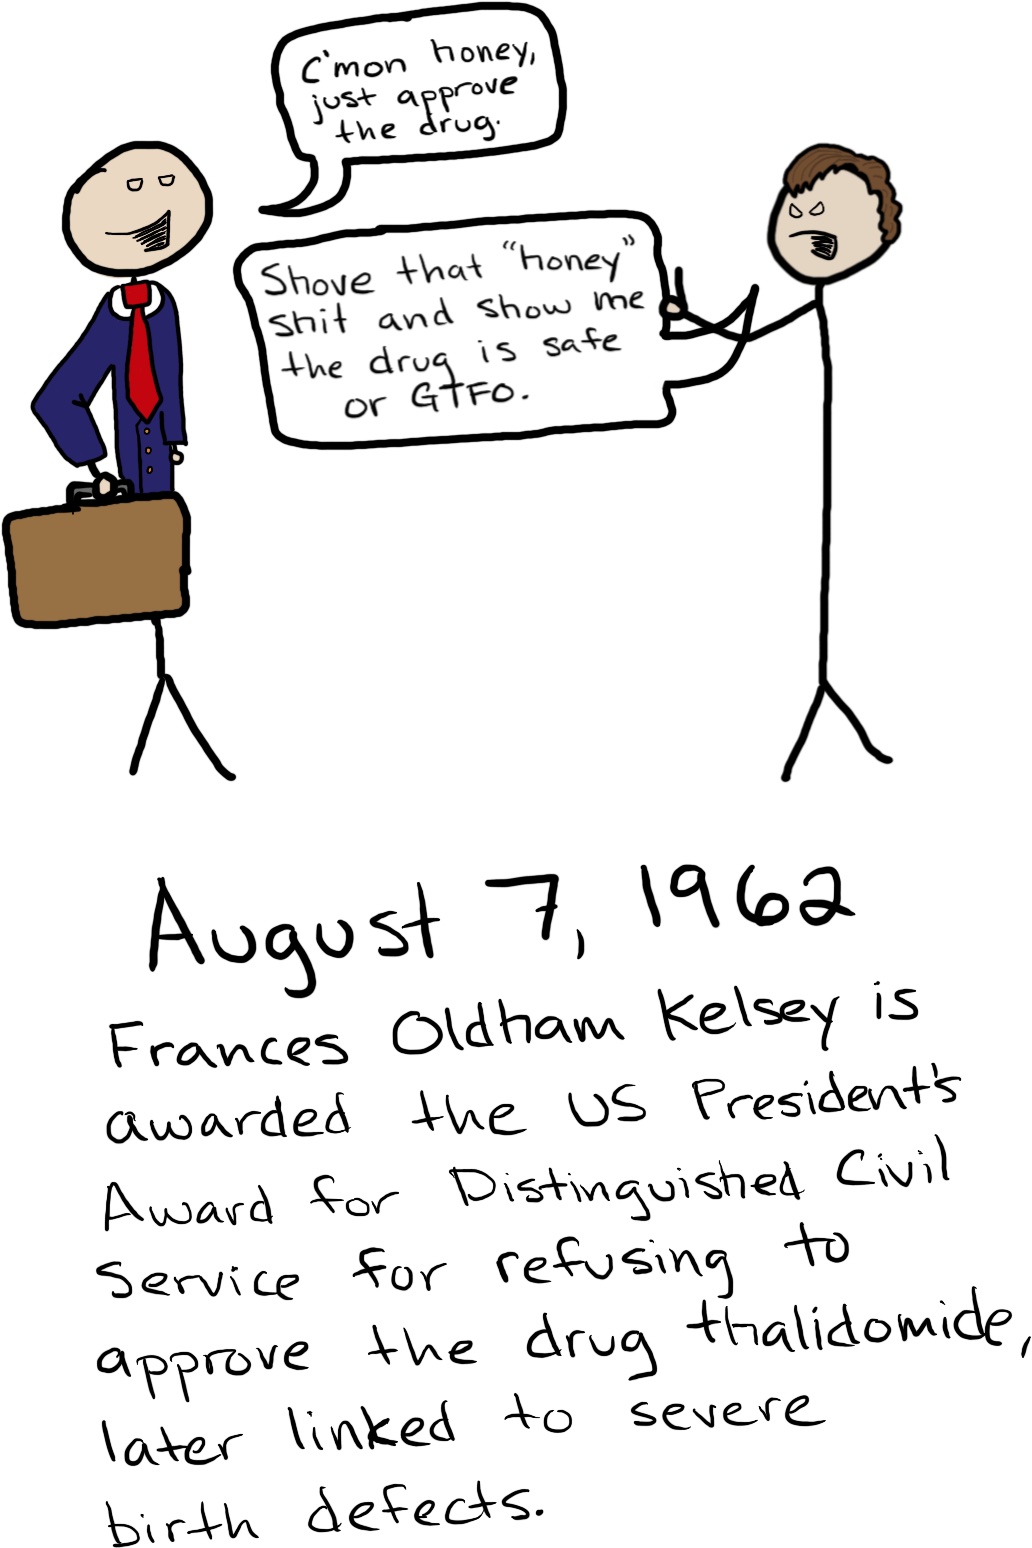 C'mon honey,
just approve
the drug.
Shove that "honey"
shit and show me
the drug is safe
or GTFO.
August 7, 1962
Frances Oldham Kelsey is
awarded the US President's
Award for Distinguished Civil
Service for refusing to
approve the drug thalidomide,
later linked to severe
birth defects.